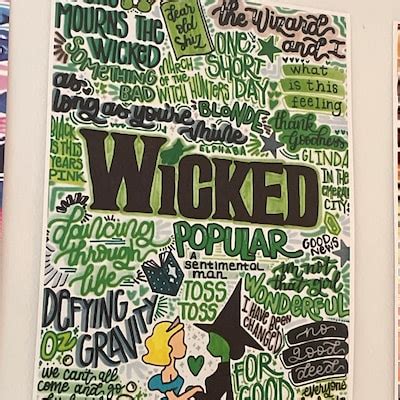 MOURNS THE
WICKED
dear
old
shiz
the Wizard
and I
SOMETHING
BAD
MARCH
OF THE
WITCH HUNTERS
ONE
SHORT
DAY
what
is this
feeling
as
long as you're
mine
BLONDE
thank
goodness
ELPHABA
BLACK
IS THIS
YEARS
PINK
GLINDA
IN THE
EMERALD
CITY
WICKED
dancing
through
life
POPULAR
GOOD
NEWS
a
sentimental
man
im not
that girl
WONDERFUL
TOSS
TOSS
DEFYING
GRAVITY
I HAVE BEEN
CHANGED
no
good
deed
OZ
FOR
GOOD
we cant all
come and go
everyone